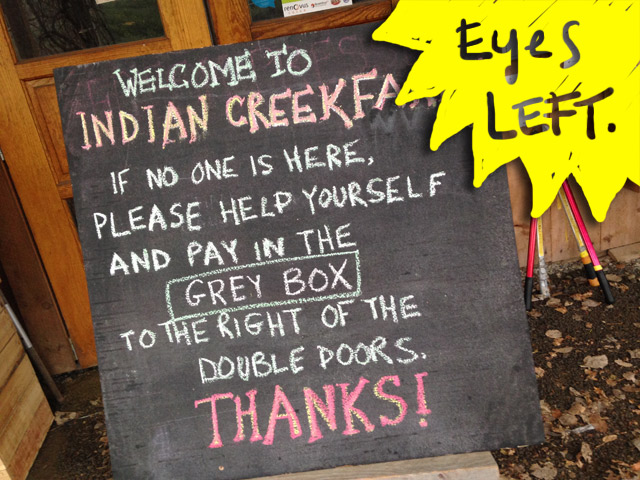 WELCOME TO
INDIAN CREEK FA
IF NO ONE IS HERE,
PLEASE HELP YOURSELF
AND PAY IN THE
GREY BOX
TO THE RIGHT OF THE
DOUBLE DOORS.
THANKS!
Eyes
LEFT.